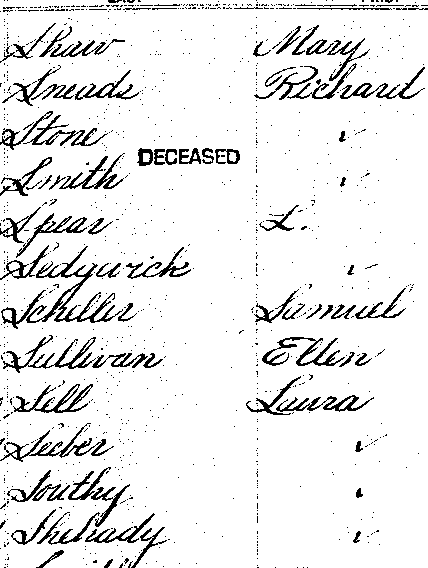 Shaw Mary
Sneads Richard
Stone "
DECEASED
Smith "
Spear L.
Sedgwick "
Scheller Samuel
Sullivan Ellen
Sell Laura
Seeber "
Southy "
Shehady "